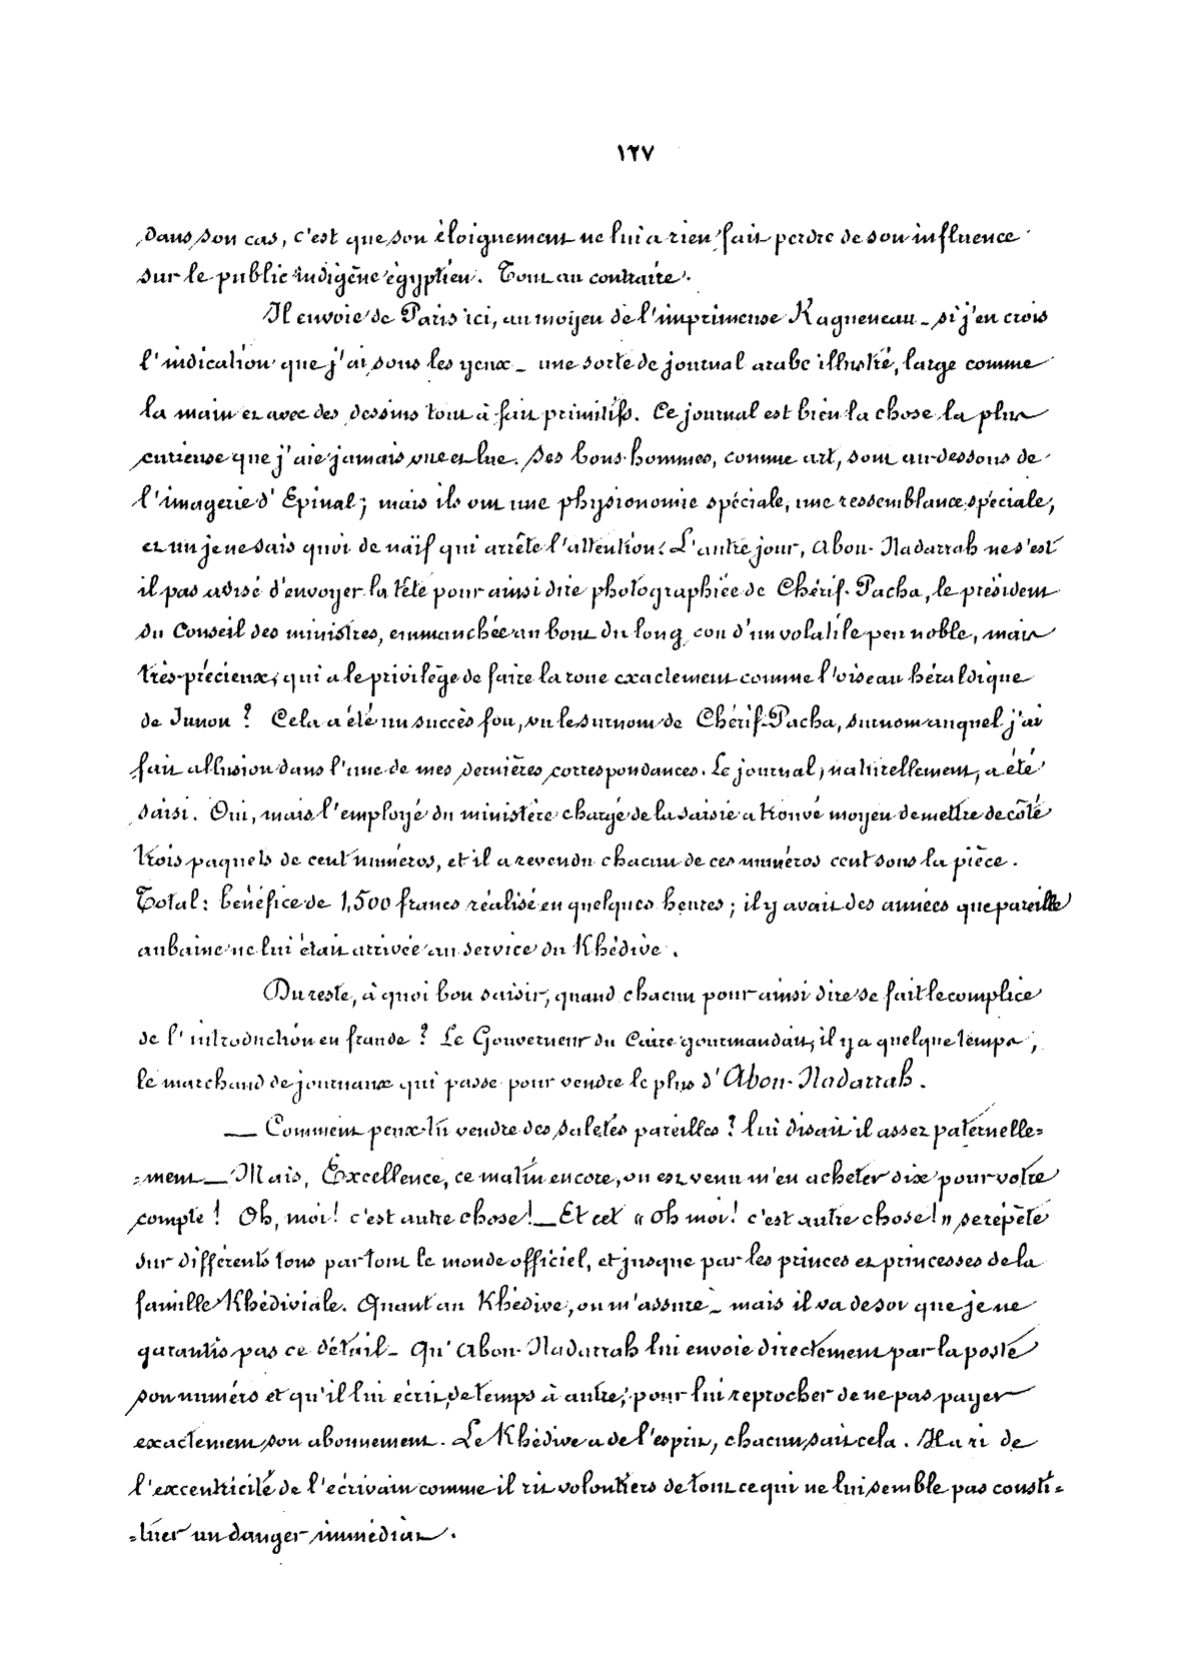 ١٢٧
dans son cas, c'est que son éloignement ne lui a rien fait perdre de son influence
sur le public indigène égyptien. Tout au contraire.
Il envoie de Paris ici, au moyen de l'imprimeuse Ragueneau - si j'en crois
l'indication que j'ai sous les yeux - une sorte de journal arabe illustré, large comme
la main et avec des dessins tout à fait primitifs. Ce journal est bien la chose la plus
curieuse que j'aie jamais vue et lue. Ses bons-hommes, comme art, sont au-dessous de
l'imagerie d'Epinal; mais ils ont une physionomie spéciale, une ressemblance spéciale,
et un je ne sais quoi de naïf qui arrête l'attention. L'autre jour, Abou-Nadarrah ne s'est
il pas avisé d'envoyer la tête pour ainsi dire photographiée de Chérif-Pacha, le président
du Conseil des ministres, emmanchée au bout du long cou d'un volatile peu noble, mais
très-précieux, qui a le privilège de faire la roue exactement comme l'oiseau héraldique
de Junon ? Cela a été un succès fou, vu le surnom de Chérif-Pacha, surnom auquel j'ai
fait allusion dans l'une de mes dernières correspondances. Le journal, naturellement, a été
saisi. Oui, mais l'employé du ministère chargé de la saisie a trouvé moyen de mettre de côté
trois paquets de cent numéros, et il a revendu chacun de ces numéros cent sous la pièce.
Total: bénéfice de 1,500 francs réalisé en quelques heures; il y avait des années que pareille
aubaine ne lui était arrivée au service du Khédive.
Du reste, à quoi bon saisir, quand chacun pour ainsi dire se fait le complice
de l'introduction en fraude ? Le Gouverneur du Caire gourmandait, il y a quelque temps,
le marchand de journaux qui passe pour vendre le plus d'Abou-Nadarrah.
— Comment peux-tu vendre des saletés pareilles ? lui disait il assez paternelle=
=ment — Mais, Excellence, ce matin encore, on est venu m'en acheter dix pour votre
compte ! Oh, moi ! c'est autre chose ! — Et cet « Oh moi ! c'est autre chose ! » se répète
sur différents tons par tout le monde officiel, et jusque par les princes et princesses de la
famille Khédiviale. Quant au Khédive, on m'assure - mais il va de soi que je ne
garantis pas ce détail - Qu'Abou-Nadarrah lui envoie directement par la poste
son numéro et qu'il lui écrit, de temps à autre, pour lui reprocher de ne pas payer
exactement son abonnement. Le Khédive a de l'esprit, chacun sait cela. Il a ri de
l'excentricité de l'écrivain comme il rit volontiers de tout ce qui ne lui semble pas consti=
=tuer un danger immédiat.